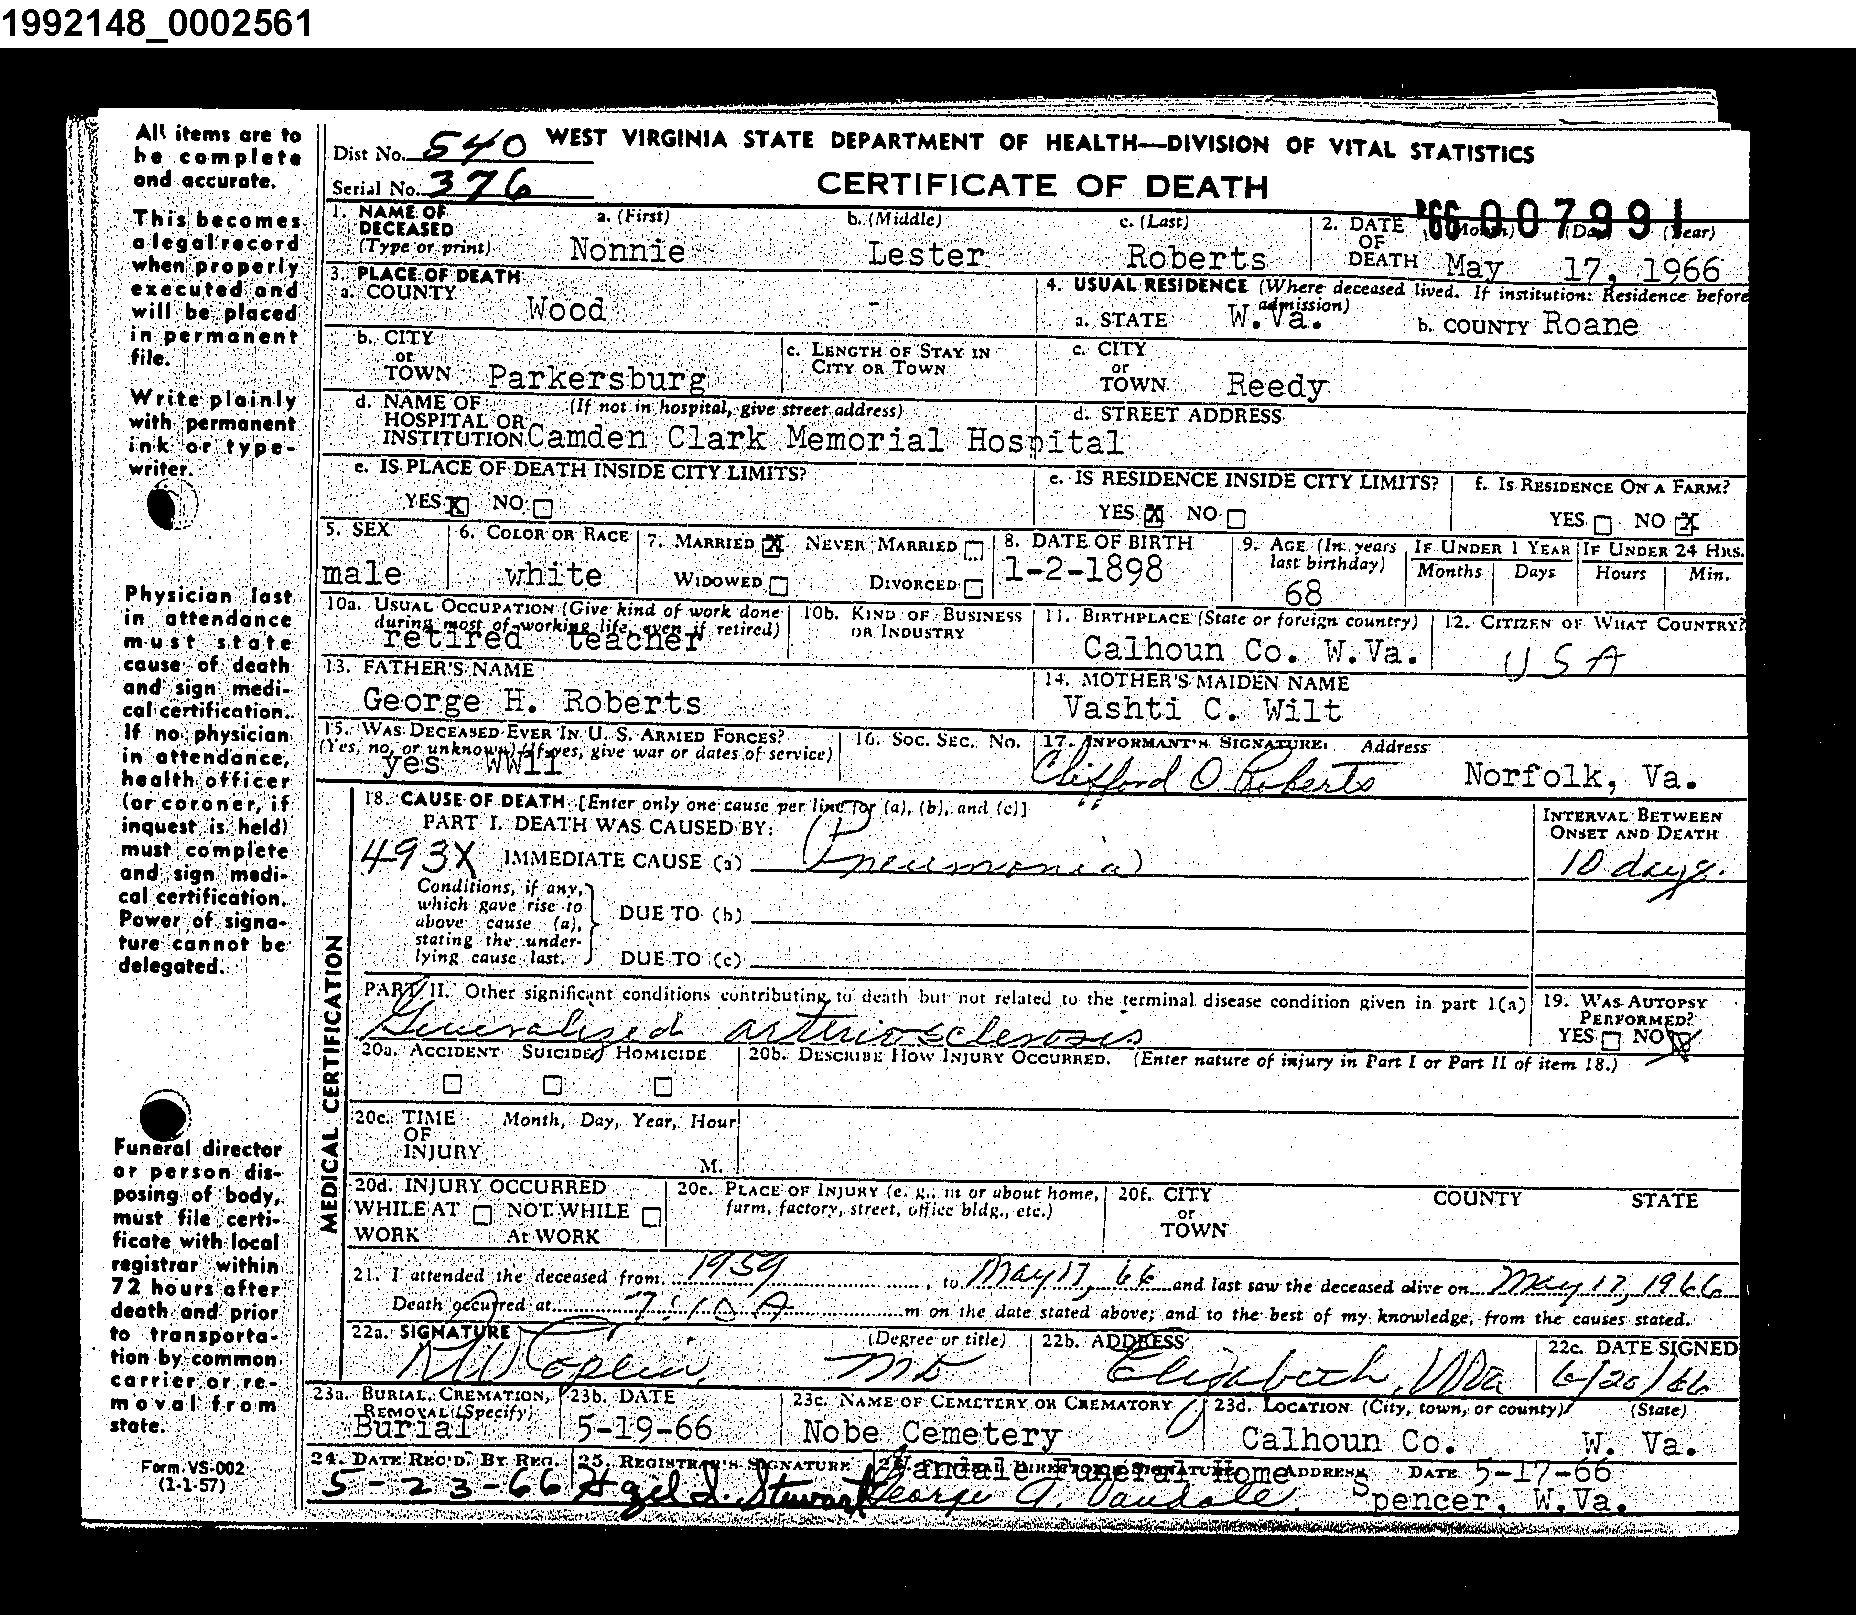 1992148_0002561
All items are to
be complete
and accurate.
This becomes
a legal record
when properly
executed and
will be placed
in permanent
file.
Write plainly
with permanent
ink or type-
writer.
Physician last
in attendance
must state
cause of death
and sign medi-
cal certification.
If no physician
in attendance,
health officer
(or coroner, if
inquest is held)
must complete
and sign medi-
cal certification.
Power of signa-
ture cannot be
delegated.
Funeral director
or person dis-
posing of body,
must file certi-
ficate with local
registrar within
72 hours after
death and prior
to transporta-
tion by common
carrier or re-
moval from
state.
Form VS-002
(1-1-57)
Dist No. 540 WEST VIRGINIA STATE DEPARTMENT OF HEALTH—DIVISION OF VITAL STATISTICS
Serial No. 376 CERTIFICATE OF DEATH
'66 007991
1. NAME OF DECEASED (Type or print) a. (First) b. (Middle) c. (Last) 2. DATE OF DEATH (Month) (Day) (Year)
Nonnie Lester Roberts May 17, 1966
3. PLACE OF DEATH
a. COUNTY Wood -
4. USUAL RESIDENCE (Where deceased lived. If institution: Residence before admission)
a. STATE W.Va. b. COUNTY Roane
b. CITY or TOWN Parkersburg c. LENGTH OF STAY IN CITY OR TOWN
c. CITY or TOWN Reedy
d. NAME OF HOSPITAL OR INSTITUTION (If not in hospital, give street address) Camden Clark Memorial Hospital
d. STREET ADDRESS
e. IS PLACE OF DEATH INSIDE CITY LIMITS?
YES X NO
e. IS RESIDENCE INSIDE CITY LIMITS? f. IS RESIDENCE ON A FARM?
YES X NO YES NO X
5. SEX 6. COLOR OR RACE 7. MARRIED X NEVER MARRIED 8. DATE OF BIRTH 9. AGE (In years last birthday) IF UNDER 1 YEAR IF UNDER 24 HRS.
male white WIDOWED DIVORCED 1-2-1898 68 Months Days Hours Min.
10a. USUAL OCCUPATION (Give kind of work done during most of working life, even if retired) 10b. KIND OF BUSINESS OR INDUSTRY 11. BIRTHPLACE (State or foreign country) 12. CITIZEN OF WHAT COUNTRY?
retired teacher Calhoun Co. W.Va. USA
13. FATHER'S NAME 14. MOTHER'S MAIDEN NAME
George H. Roberts Vashti C. Wilt
15. WAS DECEASED EVER IN U. S. ARMED FORCES? (Yes, no, or unknown) (If yes, give war or dates of service) 16. SOC. SEC. No. 17. INFORMANT'S SIGNATURE Address
yes WWii Clifford O Roberts Norfolk, Va.
MEDICAL CERTIFICATION
18. CAUSE OF DEATH [Enter only one cause per line for (a), (b), and (c)] INTERVAL BETWEEN ONSET AND DEATH
PART I. DEATH WAS CAUSED BY:
493X IMMEDIATE CAUSE (a) Pneumonia 10 days.
Conditions, if any, which gave rise to above cause (a), stating the under-lying cause last.
DUE TO (b)
DUE TO (c)
PART II. Other significant conditions contributing to death but not related to the terminal disease condition given in part 1(a) 19. WAS AUTOPSY PERFORMED?
Generalized arteriosclerosis YES NO X
20a. ACCIDENT SUICIDE HOMICIDE 20b. DESCRIBE HOW INJURY OCCURRED. (Enter nature of injury in Part I or Part II of item 18.)
20c. TIME OF INJURY Month, Day, Year, Hour
M.
20d. INJURY OCCURRED WHILE AT WORK NOT WHILE AT WORK 20e. PLACE OF INJURY (e. g., in or about home, farm, factory, street, office bldg., etc.) 20f. CITY or TOWN COUNTY STATE
21. I attended the deceased from 1959, to May 17, 66 and last saw the deceased alive on May 17, 1966
Death occurred at 7:10 A m on the date stated above; and to the best of my knowledge, from the causes stated.
22a. SIGNATURE (Degree or title) 22b. ADDRESS 22c. DATE SIGNED
MD Elizabeth, WVa 6/20/66
23a. BURIAL, CREMATION, REMOVAL (Specify) 23b. DATE 23c. NAME OF CEMETERY OR CREMATORY 23d. LOCATION (City, town, or county) (State)
Burial 5-19-66 Nobe Cemetery Calhoun Co. W. Va.
24. DATE REC'D. BY REG. 25. REGISTRAR'S SIGNATURE Vandale Funeral Home ADDRESS DATE 5-17-66
5-23-66 Stewart George A. Vandale Spencer, W.Va.